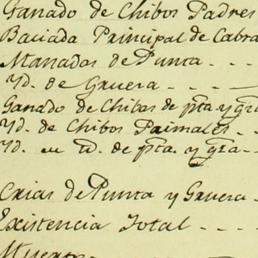 Ganado de Chibos Padres
Baciada Principal de Cabra
Manadas de Punta - - -
Yd. de Gruera - - -
Ganado de Chibas de pta y grа
Yd. de Chibos Primales - -
Yd. en id. de pta. y gra - -
Crias de Punta y Gruera -
Existencia Total - - - -
Muertes